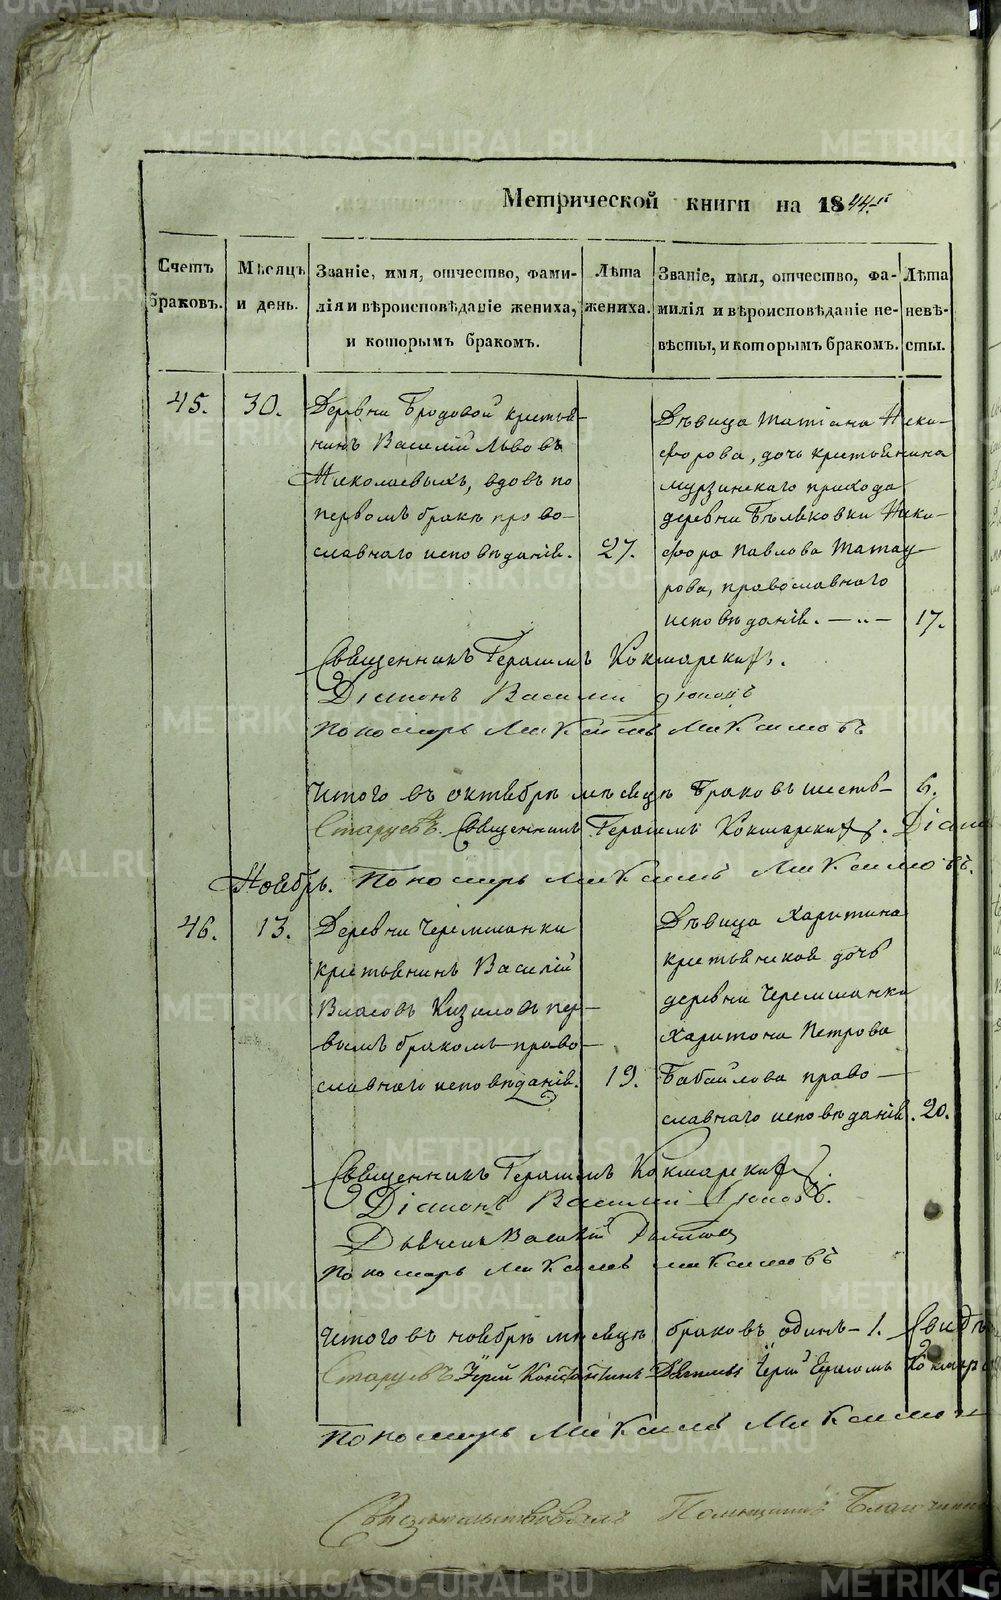 Метрической книги на 1844-й
Счетъ браковъ.
Мѣсяцъ и день.
Званіе, имя, отчество, фами-
лія и вѣроисповѣданіе жениха,
и которымъ бракомъ.
Лѣта жениха.
Званіе, имя, отчество, фа-
милія и вѣроисповѣданіе не-
вѣсты, и которымъ бракомъ.
Лѣта невѣ-
сты.
45. 30.
Деревни Бродовой крестья-
нинъ Василій Львовъ
Николаевыхъ, вдовъ по
первомъ бракѣ право-
славнаго исповѣданія. 27.
Дѣвица Татіана Ники-
форова, дочь крестьянина
мурзинскаго прихода
деревни Бѣляковки Ники-
фора Павлова Татау-
рова, православнаго
исповѣданія. 17.
Священникъ Герасимъ Кокшарскій.
Діаконъ Василій
Пономарь Максимъ Максимовъ
Итого въ октябрѣ мѣсяцѣ браковъ шесть- 6.
Священникъ Герасимъ Кокшарскій. Діако
Ноябрь. Пономарь Максимъ Максимовъ.
46. 13.
Деревни Черемшанки
крестьянинъ Василій
Власовъ Кизиловъ пер-
вымъ бракомъ право-
славнаго исповѣданія. 19.
Дѣвица Харитина
крестьянская дочь
деревни Черемшанки
Харитона Петрова
Бабайлова право-
славнаго исповѣданія. 20.
Священникъ Герасимъ Кокшарскій.
Діаконъ Василій
Василій
Пономарь Максимъ Максимовъ
Итого въ ноябрѣ мѣсяцѣ браковъ одинъ- 1. Свидѣ
Іерей Константинъ Іерей Герасимъ Кокшарс
Пономарь Максимъ Максимов
Свидѣтельствовалъ Помощникъ Благочинн
METRIKI.GASO-URAL.RU